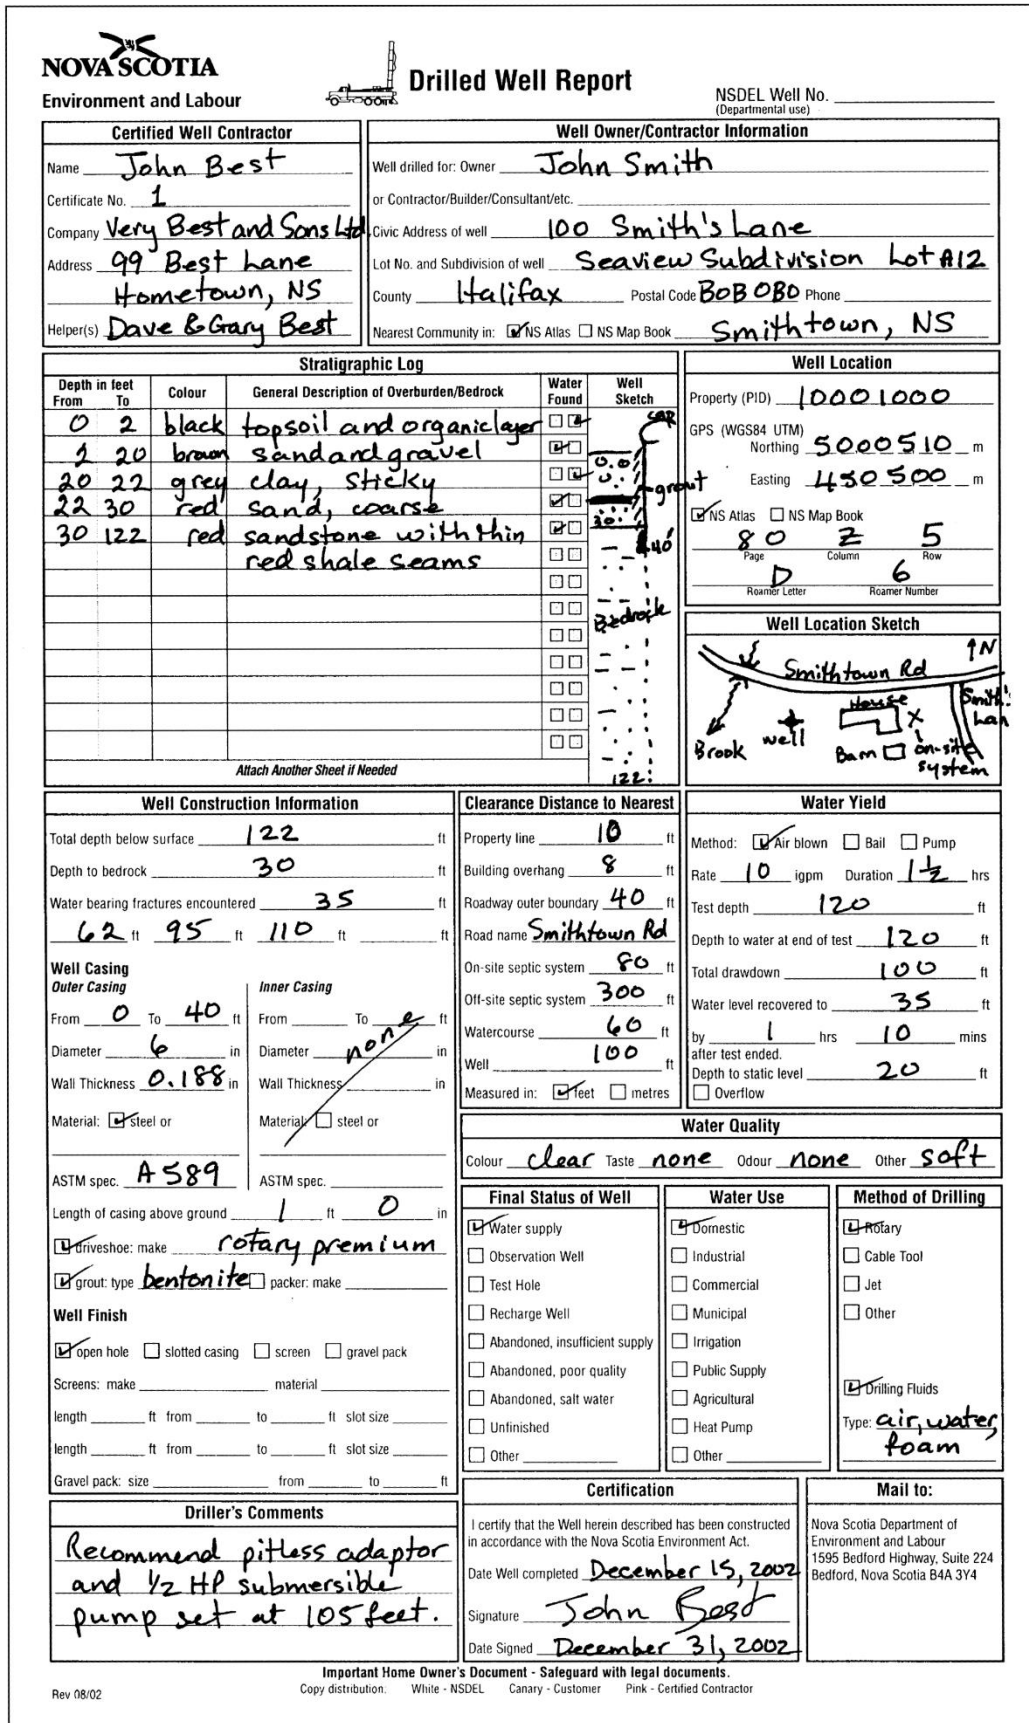 NOVA SCOTIA
Environment and Labour
Drilled Well Report
NSDEL Well No.
(Departmental use)
Certified Well Contractor
Name John Best
Certificate No. 1
Company Very Best and Sons Ltd
Address 99 Best Lane
Hometown, NS
Helper(s) Dave & Gary Best
Well Owner/Contractor Information
Well drilled for: Owner John Smith
or Contractor/Builder/Consultant/etc.
Civic Address of well 100 Smith's Lane
Lot No. and Subdivision of well Seaview Subdivision Lot A12
County Halifax Postal Code B0B 0B0 Phone
Nearest Community in: NS Atlas NS Map Book Smithtown, NS
Stratigraphic Log
Depth in feet Colour General Description of Overburden/Bedrock Water Found Well Sketch
From To
0 2 black topsoil and organic layer
2 20 brown sand and gravel
20 22 grey clay, sticky
22 30 red sand, coarse
30 122 red sandstone with thin
red shale seams
Attach Another Sheet if Needed
cap
grout
30
40'
Bedrock
122
Well Location
Property (PID) 10001000
GPS (WGS84 UTM)
Northing 5000510 m
Easting 450500 m
NS Atlas NS Map Book
80 Z 5
Page Column Row
D 6
Roamer Letter Roamer Number
Well Location Sketch
N
Smithtown Rd
House
Smith's Lan
Brook well Barn on-site system
Well Construction Information
Total depth below surface 122 ft
Depth to bedrock 30 ft
Water bearing fractures encountered 35 ft
62 ft 95 ft 110 ft ft
Well Casing
Outer Casing
From 0 To 40 ft
Diameter 6 in
Wall Thickness 0.188 in
Material: steel or
ASTM spec. A589
Inner Casing
From To none ft
Diameter none in
Wall Thickness in
Material: steel or
ASTM spec.
Length of casing above ground 1 ft 0 in
driveshoe: make rotary premium
grout: type bentonite packer: make
Well Finish
open hole slotted casing screen gravel pack
Screens: make material
length ft from to ft slot size
length ft from to ft slot size
Gravel pack: size from to ft
Clearance Distance to Nearest
Property line 10 ft
Building overhang 8 ft
Roadway outer boundary 40 ft
Road name Smithtown Rd
On-site septic system 80 ft
Off-site septic system 300 ft
Watercourse 60 ft
Well 100 ft
Measured in: feet metres
Water Yield
Method: Air blown Bail Pump
Rate 10 igpm Duration 1 1/2 hrs
Test depth 120 ft
Depth to water at end of test 120 ft
Total drawdown 100 ft
Water level recovered to 35 ft
by 1 hrs 10 mins
after test ended.
Depth to static level 20 ft
Overflow
Water Quality
Colour clear Taste none Odour none Other soft
Final Status of Well
Water supply
Observation Well
Test Hole
Recharge Well
Abandoned, insufficient supply
Abandoned, poor quality
Abandoned, salt water
Unfinished
Other
Water Use
Domestic
Industrial
Commercial
Municipal
Irrigation
Public Supply
Agricultural
Heat Pump
Other
Method of Drilling
Rotary
Cable Tool
Jet
Other
Drilling Fluids
Type: air, water,
foam
Driller's Comments
Recommend pitless adaptor
and 1/2 HP submersible
pump set at 105 feet.
Certification
I certify that the Well herein described has been constructed
in accordance with the Nova Scotia Environment Act.
Date Well completed December 15, 2002
Signature John Best
Date Signed December 31, 2002
Mail to:
Nova Scotia Department of
Environment and Labour
1595 Bedford Highway, Suite 224
Bedford, Nova Scotia B4A 3Y4
Important Home Owner's Document - Safeguard with legal documents.
Rev 08/02
Copy distribution: White - NSDEL Canary - Customer Pink - Certified Contractor